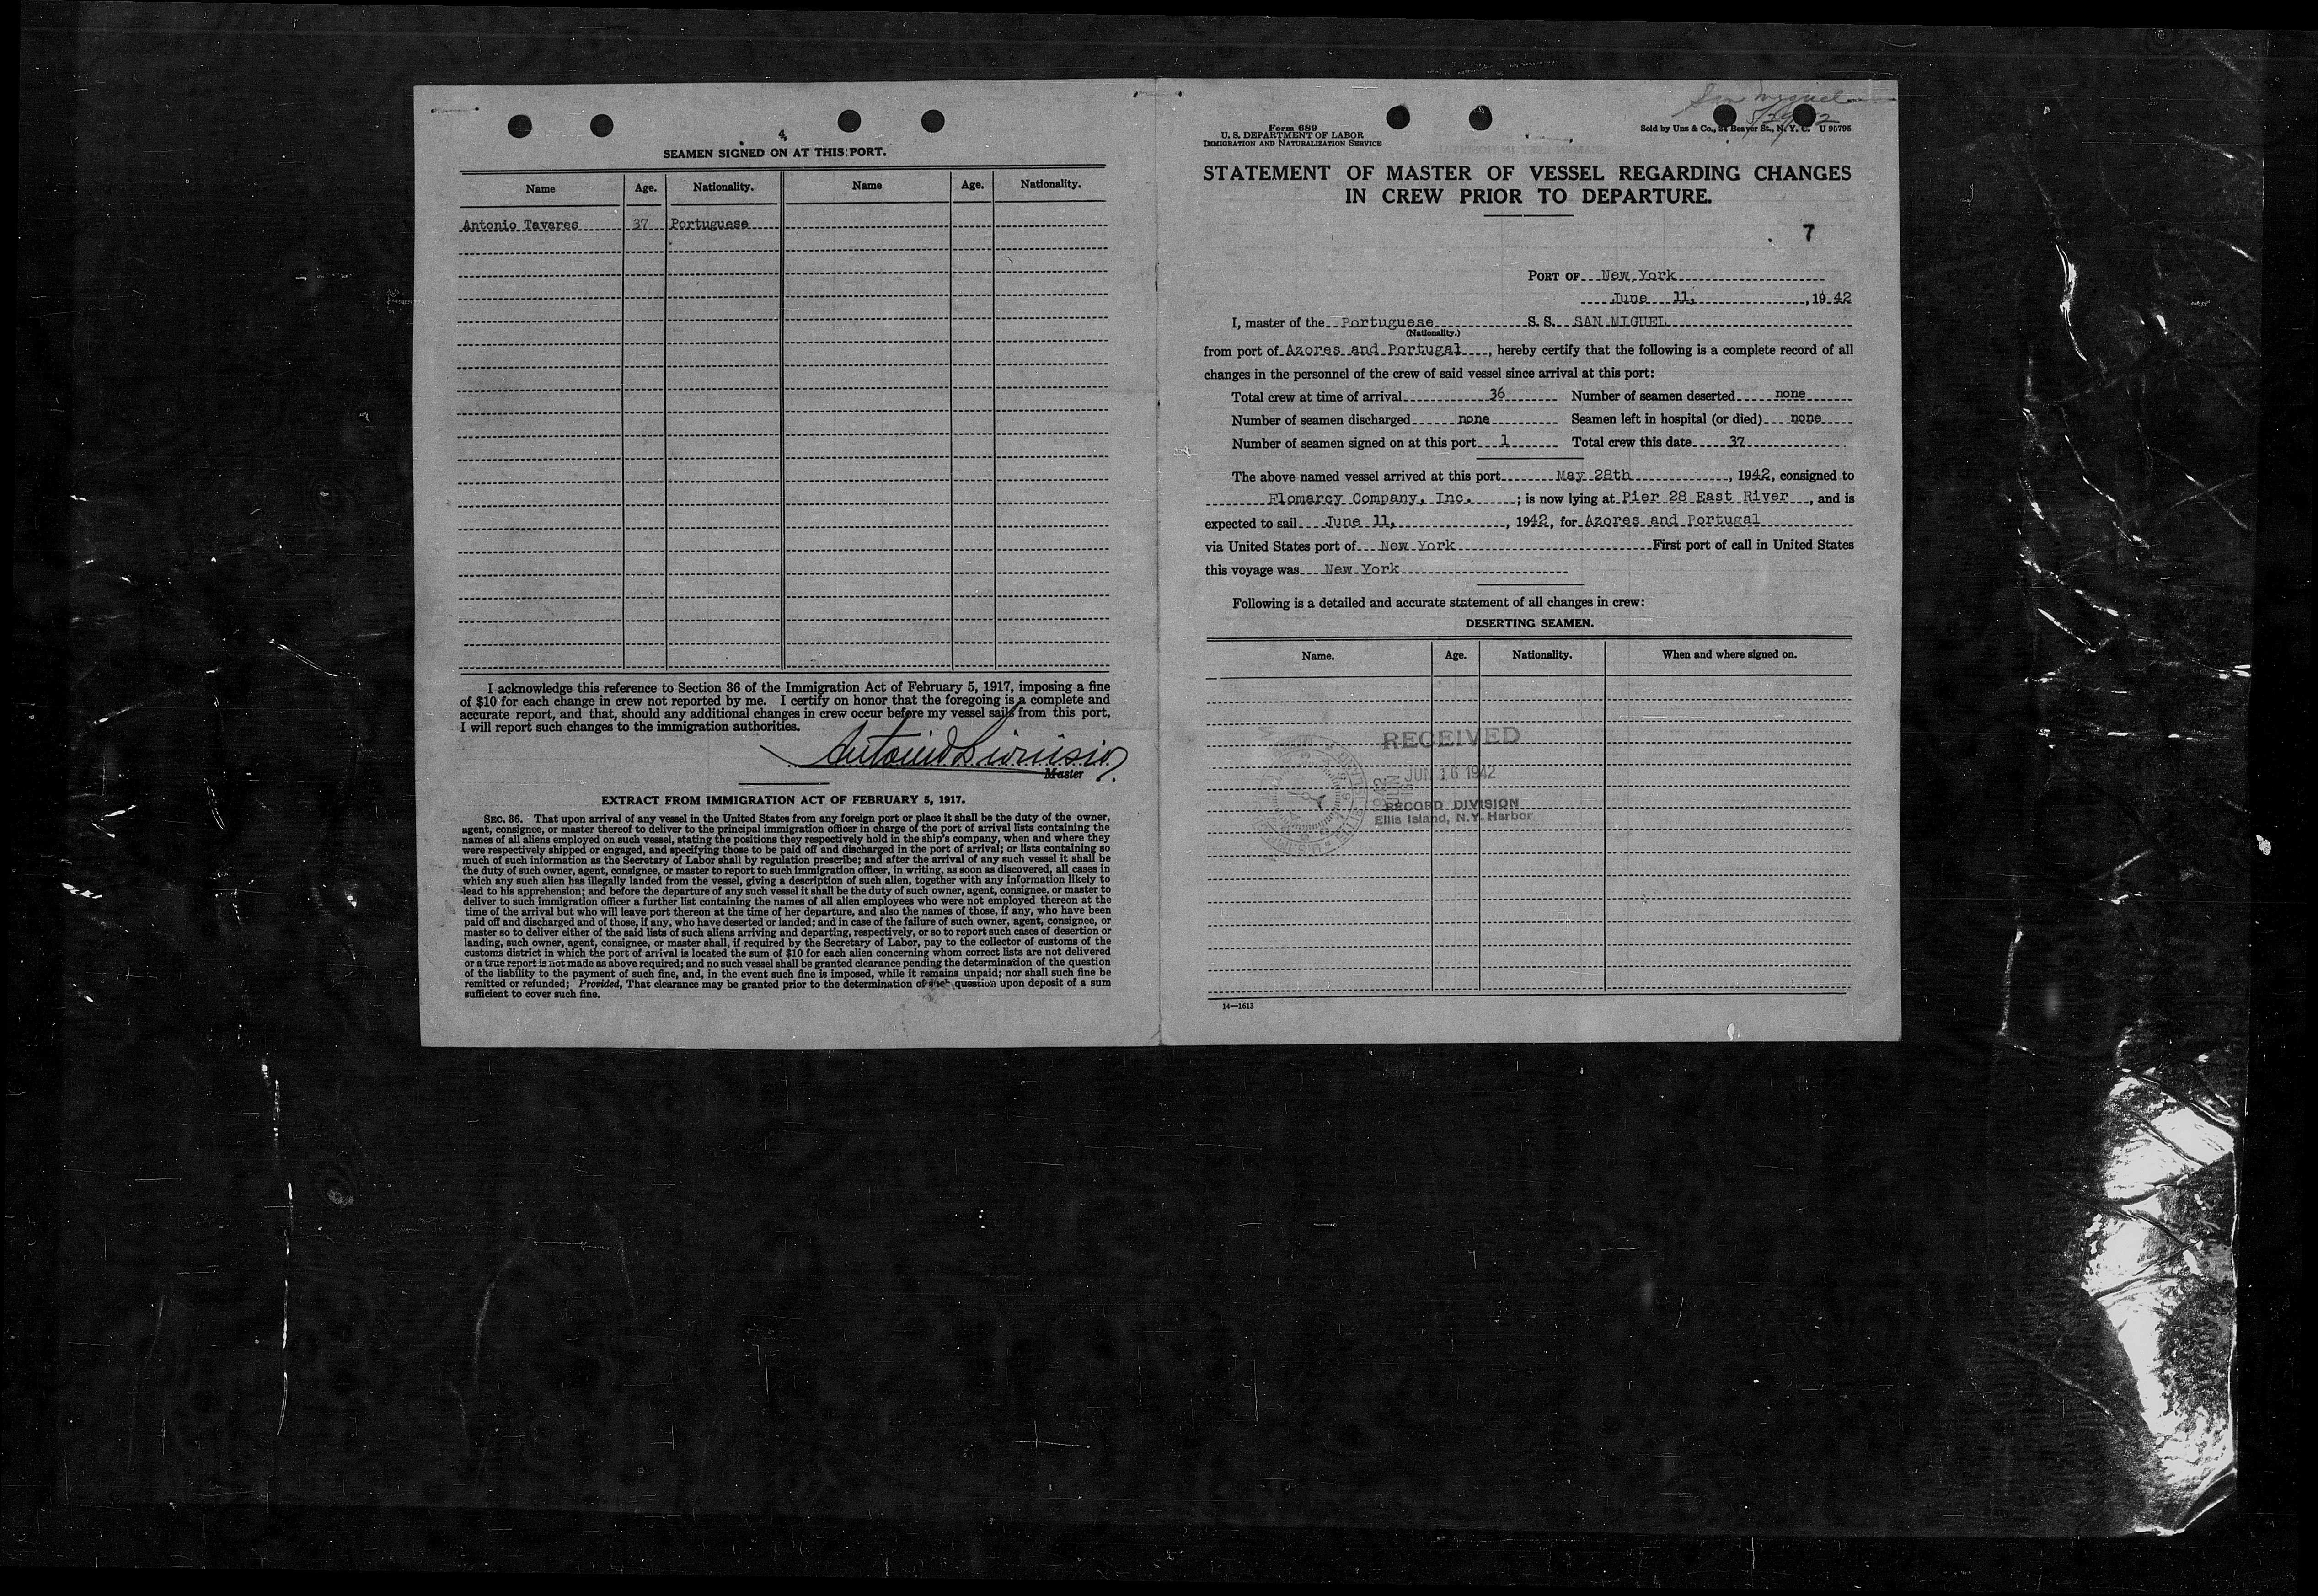 4
SEAMEN SIGNED ON AT THIS PORT.
Name Age. Nationality. Name Age. Nationality.
Antonio Tavares 37 Portuguese
I acknowledge this reference to Section 36 of the Immigration Act of February 5, 1917, imposing a fine
of $10 for each change in crew not reported by me. I certify on honor that the foregoing is a complete and
accurate report, and that, should any additional changes in crew occur before my vessel sails from this port,
I will report such changes to the immigration authorities.
Antonio Dionisio
Master
EXTRACT FROM IMMIGRATION ACT OF FEBRUARY 5, 1917.
SEC. 36. That upon arrival of any vessel in the United States from any foreign port or place it shall be the duty of the owner,
agent, consignee, or master thereof to deliver to the principal immigration officer in charge of the port of arrival lists containing the
names of all aliens employed on such vessel, stating the positions they respectively hold in the ship's company, when and where they
were respectively shipped or engaged, and specifying those to be paid off and discharged in the port of arrival; or lists containing so
much of such information as the Secretary of Labor shall by regulation prescribe; and after the arrival of any such vessel it shall be
the duty of such owner, agent, consignee, or master to report to such immigration officer, in writing, as soon as discovered, all cases in
which any such alien has illegally landed from the vessel, giving a description of such alien, together with any information likely to
lead to his apprehension; and before the departure of any such vessel it shall be the duty of such owner, agent, consignee, or master to
deliver to such immigration officer a further list containing the names of all alien employees who were not employed thereon at the
time of the arrival but who will leave port thereon at the time of her departure, and also the names of those, if any, who have been
paid off and discharged and of those, if any, who have deserted or landed; and in case of the failure of such owner, agent, consignee, or
master so to deliver either of the said lists of such aliens arriving and departing, respectively, or so to report such cases of desertion or
landing, such owner, agent, consignee, or master shall, if required by the Secretary of Labor, pay to the collector of customs of the
customs district in which the port of arrival is located the sum of $10 for each alien concerning whom correct lists are not delivered
or a true report is not made as above required; and no such vessel shall be granted clearance pending the determination of the question
of the liability to the payment of such fine, and, in the event such fine is imposed, while it remains unpaid; nor shall such fine be
remitted or refunded; Provided, That clearance may be granted prior to the determination of such question upon deposit of a sum
sufficient to cover such fine.
San Miguel
Form 689
U. S. DEPARTMENT OF LABOR
IMMIGRATION AND NATURALIZATION SERVICE
Sold by Unz & Co., 24 Beaver St., N. Y. C. U 95795
STATEMENT OF MASTER OF VESSEL REGARDING CHANGES
IN CREW PRIOR TO DEPARTURE.
7
PORT OF New York
June 11, 1942
I, master of the Portuguese S. S. SAN MIGUEL
(Nationality.)
from port of Azores and Portugal, hereby certify that the following is a complete record of all
changes in the personnel of the crew of said vessel since arrival at this port:
Total crew at time of arrival 36 Number of seamen deserted none
Number of seamen discharged none Seamen left in hospital (or died) none
Number of seamen signed on at this port 1 Total crew this date 37
The above named vessel arrived at this port May 28th, 1942, consigned to
Flomarcy Company, Inc. ; is now lying at Pier 28 East River, and is
expected to sail June 11, , 1942, for Azores and Portugal
via United States port of New York First port of call in United States
this voyage was New York
Following is a detailed and accurate statement of all changes in crew:
DESERTING SEAMEN.
Name. Age. Nationality. When and where signed on.
RECEIVED
JUN 16 1942
RECORD DIVISION
Ellis Island, N.Y. Harbor
14—1613